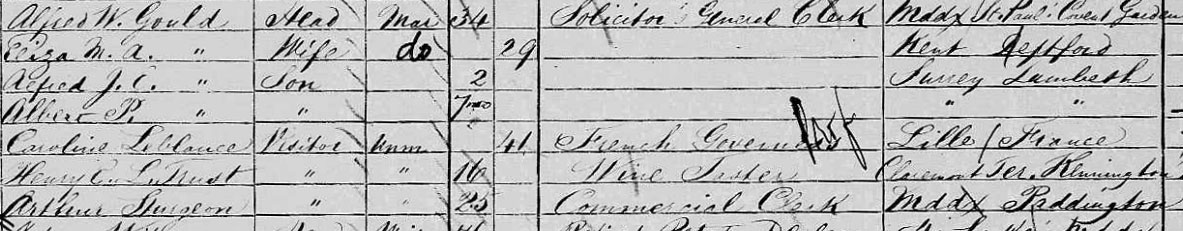 Alfred W. Gould Head Mar 34 Solicitor's General Clerk Mddx St. Paul's Covent Garden
Eliza M. A. " Wife do 29 Kent Deptford
Alfred J. C. " Son 2 Surrey Lambeth
Albert P. " " 7mo " "
Caroline Leblance Visitor Unm 41 French Governess Lille / France
Henry " " 16 Wine Taster Claremont Ter. Kennington
Arthur Sturgeon " " 25 Commercial Clerk Mddx Paddington